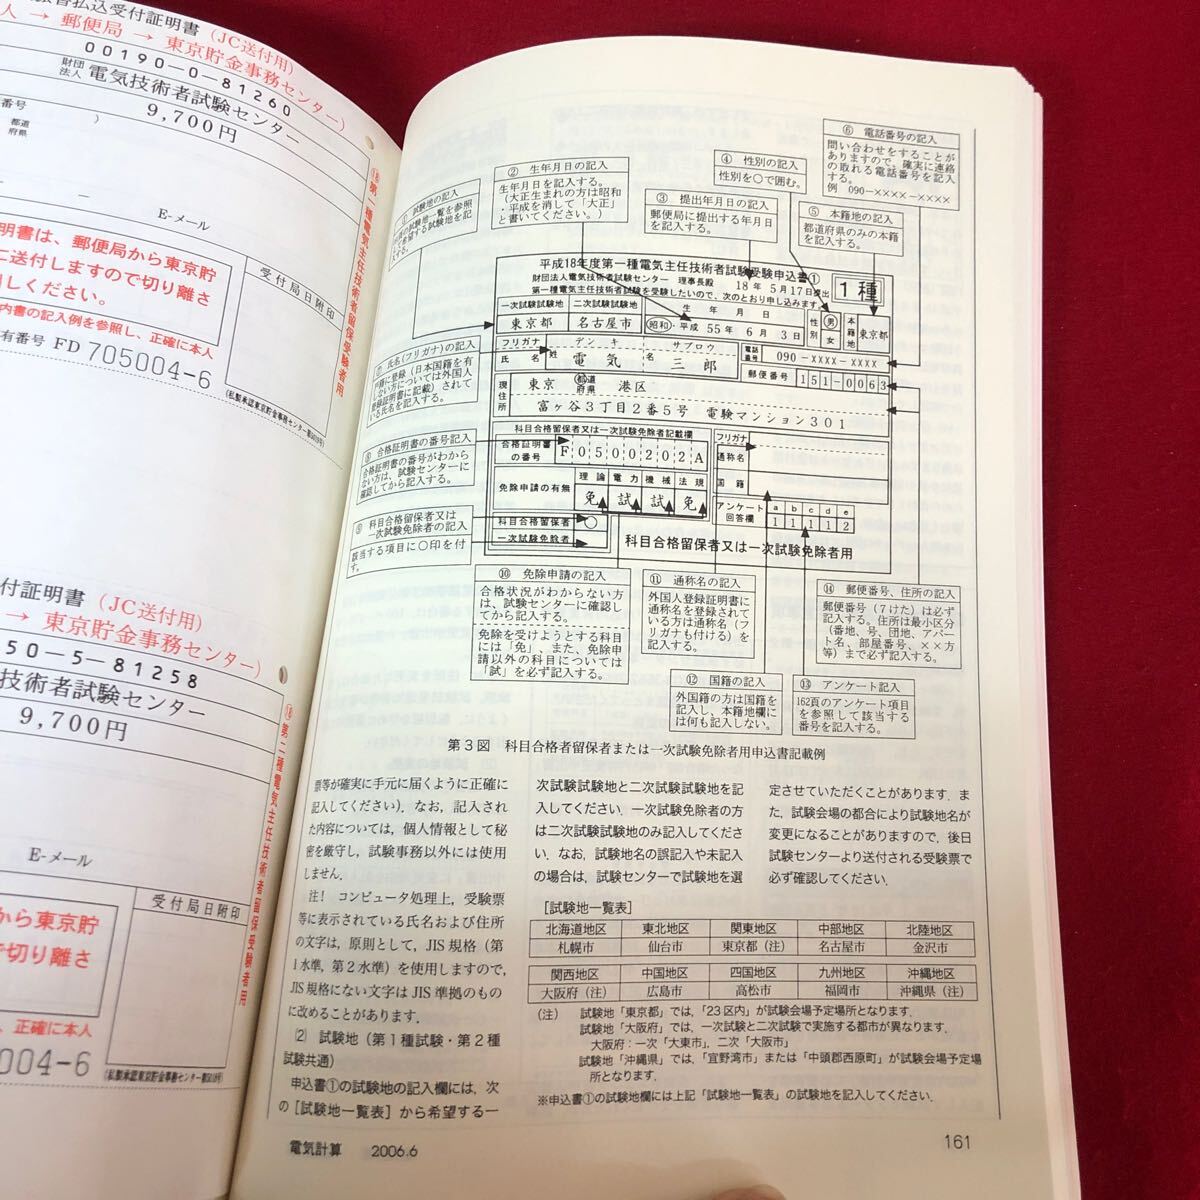 払込受付証明書 (JC送付用)
人 → 郵便局 → 東京貯金事務センター)
00190-0-81260
財団法人 電気技術者試験センター
9,700円
番号
都道府県
E-メール
明書は、郵便局から東京貯
に送付しますので切り離さ
内書の記入例を参照し、正確に本人
有番号 FD 705004-6
受付局日附印
⑱第一種電気主任技術者留保受験者用
付証明書 (JC送付用)
→ 東京貯金事務センター)
50-5-81258
技術者試験センター
9,700円
E-メール
から東京貯
で切り離さ
、正確に本人
5004-6
受付局日附印
⑱第二種電気主任技術者留保受験者用
② 生年月日の記入
生年月日を記入する。
(大正生まれの方は昭和
・平成を消して「大正」
と書いてください。)
④ 性別の記入
性別を○で囲む。
⑥ 電話番号の記入
問い合わせをすることが
ありますので、確実に連絡
の取れる電話番号を記入
する。
例 090-××××-××××
① 試験地の記入
③ 提出年月日の記入
郵便局に提出する年月日
を記入する。
⑤ 本籍地の記入
都道府県のみの本籍
を記入する。
平成18年度第一種電気主任技術者試験受験申込書①
財団法人電気技術者試験センター 理事長殿 18年 5月17日提出
第一種電気主任技術者試験を受験したいので、次のとおり申し込みます
1種
一次試験試験地 二次試験試験地 生 年 月 日 性別 本籍地
東京都 名古屋市 昭和・平成 55年 6月 3日 男 女 東京都
フリガナ デンキ サブロウ
氏名 姓 電気 名 三郎
電話番号 090-××××-××××
郵便番号 151-0063
現住所 東京 都道府県 港区
富ヶ谷3丁目2番5号 電験マンション301
⑦ 氏名(フリガナ)の記入
戸籍に登録(日本国籍を有
しない方については外国人
登録証明書に記載)されて
いる氏名を記入する。
⑧ 合格証明書の番号記入
合格証明書の番号がわから
ない方は、試験センターに
確認してから記入する。
科目合格留保者又は一次試験免除者記載欄
合格証明書の番号 F0500202A
理論 電力 機械 法規
免除申請の有無 免 試 試 免
科目合格留保者 ○
一次試験免除者
フリガナ
通称名
国籍
アンケート回答欄 a b c d e
1 1 1 1 2
科目合格留保者又は一次試験免除者用
⑨ 科目合格留保者又は
一次試験免除者の記入
該当する項目に○印を付
す。
⑩ 免除申請の記入
合格状況がわからない方
は、試験センターに確認し
てから記入する。
免除を受けようとする科目
には「免」、また、免除申
請以外の科目については
「試」を必ず記入する。
⑪ 通称名の記入
外国人登録証明書に
通称名を登録されて
いる方は通称名(フ
リガナも付ける)を
記入する。
⑭ 郵便番号、住所の記入
郵便番号(7けた)は必ず
記入する。住所は最小区分
(番地、号、団地、アパー
ト名、部屋番号、××方
等)まで必ず記入する。
⑫ 国籍の記入
外国籍の方は国籍を
記入し、本籍地欄に
は何も記入しない。
⑬ アンケート記入
162頁のアンケート項目
を参照して該当する
番号を記入する。
第3図 科目合格者留保者または一次試験免除者用申込書記載例
票等が確実に手元に届くように正確に
記入してください)．なお，記入され
た内容については，個人情報として秘
密を厳守し，試験事務以外には使用
しません．
注！ コンピュータ処理上，受験票
等に表示されている氏名および住所
の文字は，原則として，JIS規格（第
1水準，第2水準）を使用しますので，
JIS規格にない文字はJIS準拠のもの
に改めることがあります．
〔2〕 試験地（第1種試験・第2種
試験共通）
申込書①の試験地の記入欄には，次
の［試験地一覧表］から希望する一
次試験試験地と二次試験試験地を記
入してください．一次試験免除者の方
は二次試験試験地のみ記入してくださ
い．なお，試験地名の誤記入や未記入
の場合は，試験センターで試験地を選
定させていただくことがあります．ま
た，試験会場の都合により試験地名が
変更になることがありますので，後日
試験センターより送付される受験票で
必ず確認してください．
［試験地一覧表］
北海道地区 東北地区 関東地区 中部地区 北陸地区
札幌市 仙台市 東京都（注） 名古屋市 金沢市
関西地区 中国地区 四国地区 九州地区 沖縄地区
大阪府（注） 広島市 高松市 福岡市 沖縄県（注）
（注） 試験地「東京都」では，「23区内」が試験会場予定場所となります．
試験地「大阪府」では，一次試験と二次試験で実施する都市が異なります．
大阪府：一次「大東市」，二次「大阪市」
試験地「沖縄県」では，「宜野湾市」または「中頭郡西原町」が試験会場予定場
所となります．
※申込書①の試験地欄には上記「試験地一覧表」の試験地を記入してください．
電気計算 2006.6
161